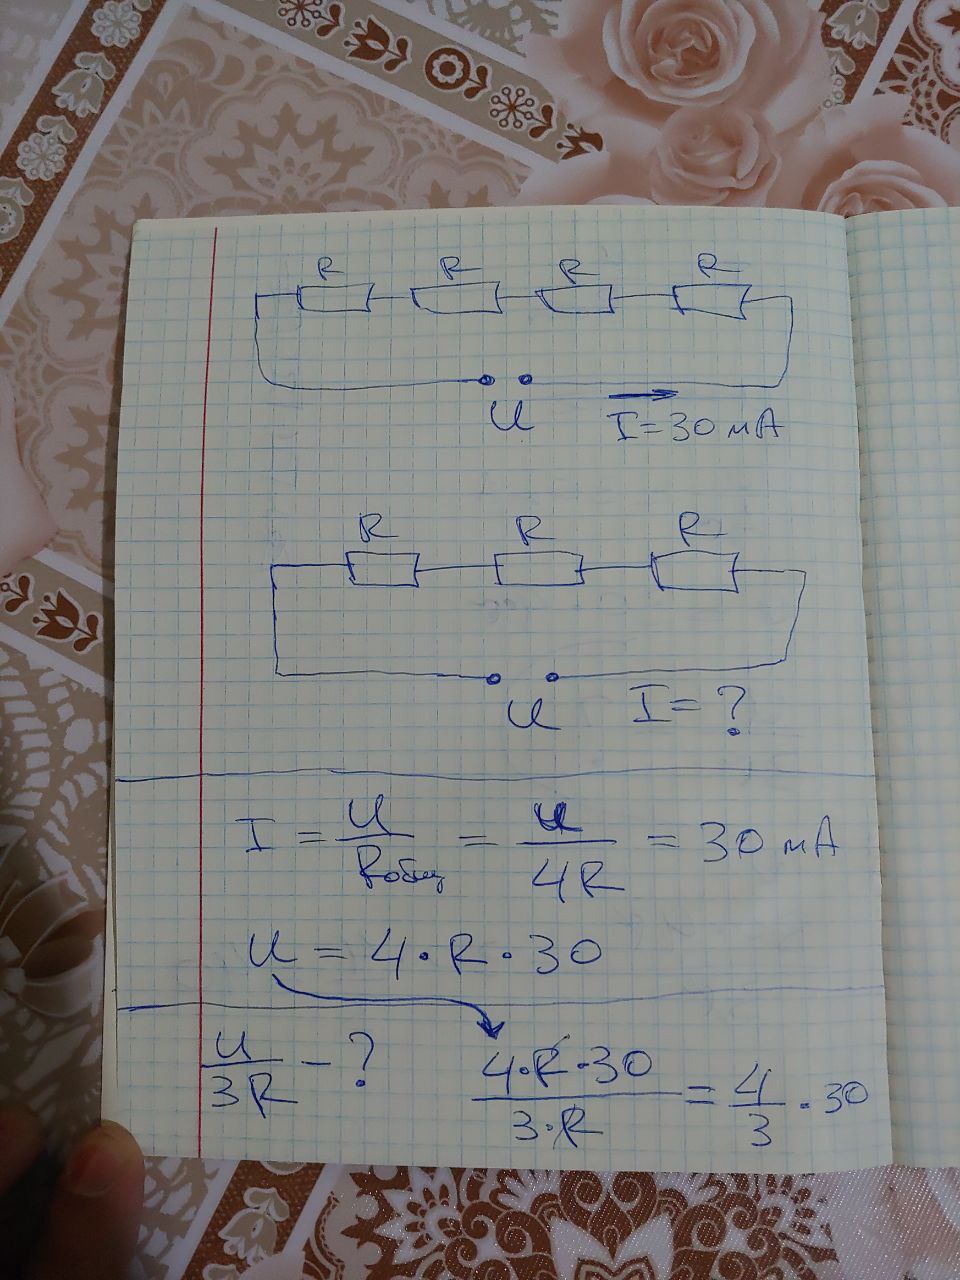 R R R R
U
I = 30 мА
R R R
U I = ?
I = U/Rобщ = U/4R = 30 мА
U = 4 · R · 30
U/3R - ? 4·R·30/3·R = 4/3 · 30